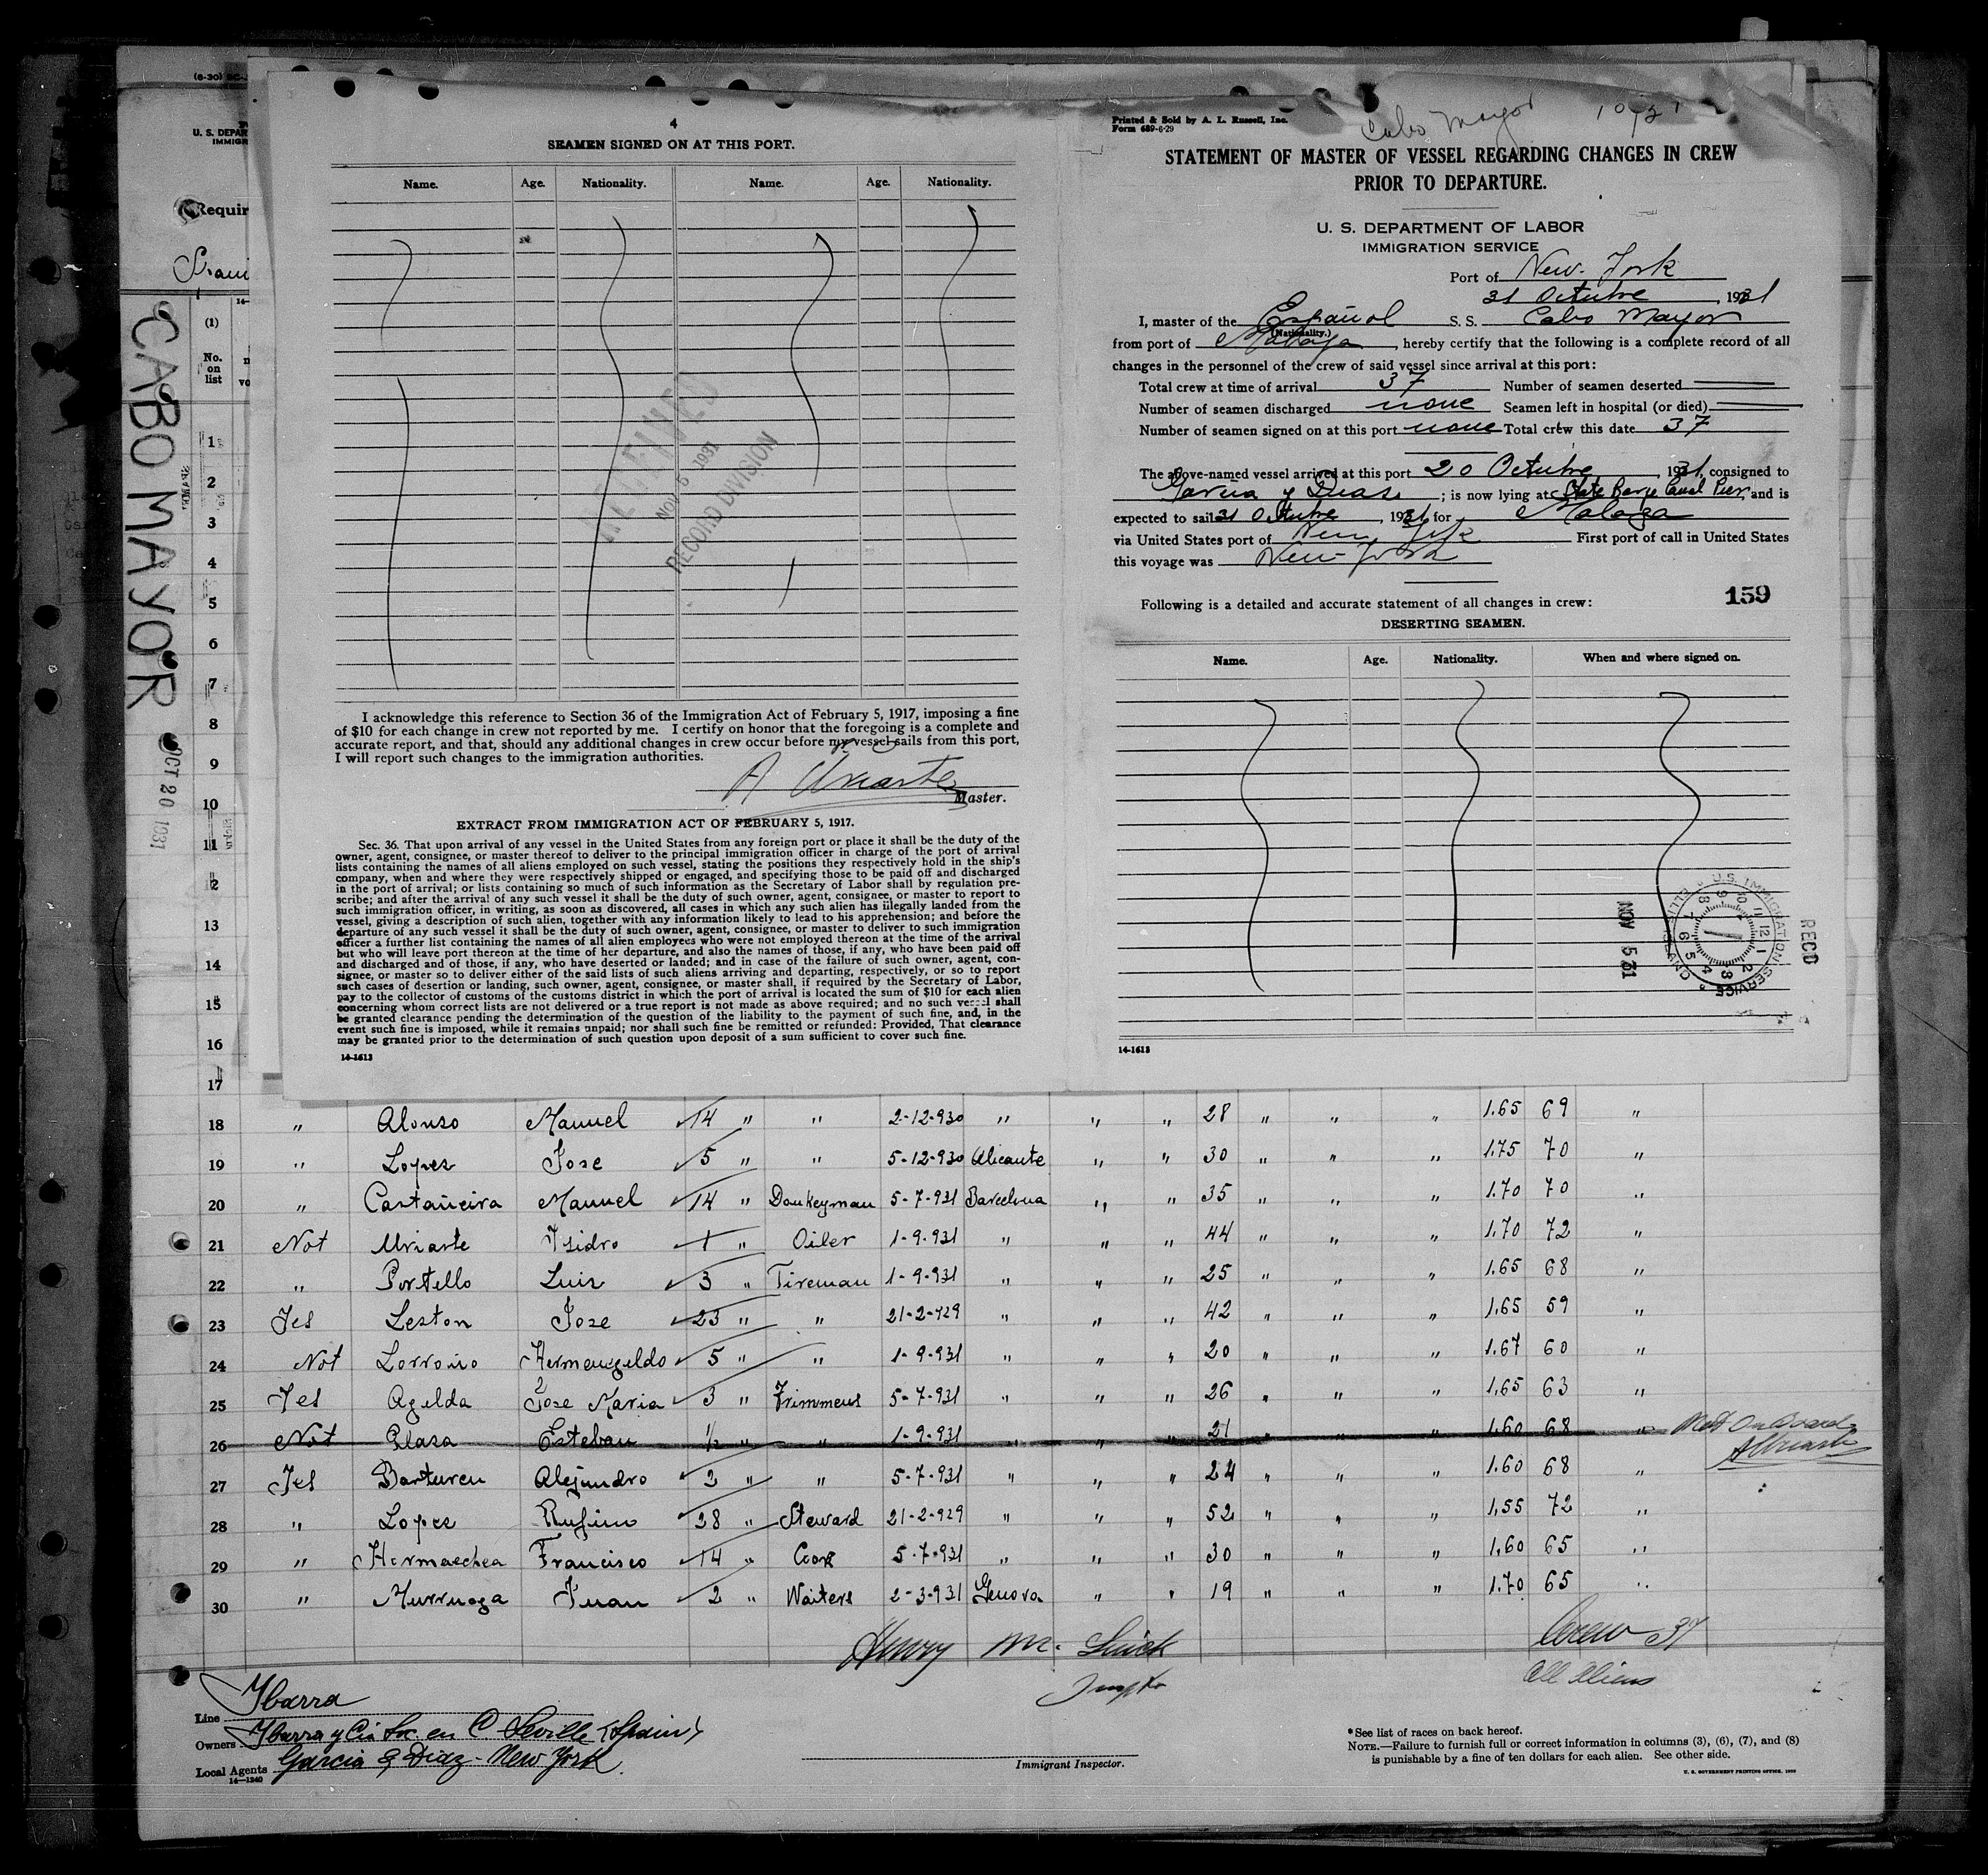 (6-30)
U. S. DEPAR
IMMIGR
Requir
CABO MAYOR
OCT 20 1931
(1)
No.
on
list
1
2
3
4
5
6
7
8
9
10
11
12
13
14
15
16
17
4
SEAMEN SIGNED ON AT THIS PORT.
Name. Age. Nationality. Name. Age. Nationality.
NOV 5 1931
RECORD DIVISION
I acknowledge this reference to Section 36 of the Immigration Act of February 5, 1917, imposing a fine
of $10 for each change in crew not reported by me. I certify on honor that the foregoing is a complete and
accurate report, and that, should any additional changes in crew occur before my vessel sails from this port,
I will report such changes to the immigration authorities.
A Uriarte
Master.
EXTRACT FROM IMMIGRATION ACT OF FEBRUARY 5, 1917.
Sec. 36. That upon arrival of any vessel in the United States from any foreign port or place it shall be the duty of the
owner, agent, consignee, or master thereof to deliver to the principal immigration officer in charge of the port of arrival
lists containing the names of all aliens employed on such vessel, stating the positions they respectively hold in the ship's
company, when and where they were respectively shipped or engaged, and specifying those to be paid off and discharged
in the port of arrival; or lists containing so much of such information as the Secretary of Labor shall by regulation pre-
scribe; and after the arrival of any such vessel it shall be the duty of such owner, agent, consignee, or master to report to
such immigration officer, in writing, as soon as discovered, all cases in which any such alien has illegally landed from the
vessel, giving a description of such alien, together with any information likely to lead to his apprehension; and before the
departure of any such vessel it shall be the duty of such owner, agent, consignee, or master to deliver to such immigration
officer a further list containing the names of all alien employees who were not employed thereon at the time of the arrival
but who will leave port thereon at the time of her departure, and also the names of those, if any, who have been paid off
and discharged and of those, if any, who have deserted or landed; and in case of the failure of such owner, agent, con-
signee, or master so to deliver either of the said lists of such aliens arriving and departing, respectively, or so to report
such cases of desertion or landing, such owner, agent, consignee, or master shall, if required by the Secretary of Labor,
pay to the collector of customs of the customs district in which the port of arrival is located the sum of $10 for each alien
concerning whom correct lists are not delivered or a true report is not made as above required; and no such vessel shall
be granted clearance pending the determination of the question of the liability to the payment of such fine, and, in the
event such fine is imposed, while it remains unpaid; nor shall such fine be remitted or refunded: Provided, That clearance
may be granted prior to the determination of such question upon deposit of a sum sufficient to cover such fine.
14-1613
Printed & Sold by A. L. Russell, Inc.
Form 689-6-29
Cabo Mayor 10/31
STATEMENT OF MASTER OF VESSEL REGARDING CHANGES IN CREW
PRIOR TO DEPARTURE.
U. S. DEPARTMENT OF LABOR
IMMIGRATION SERVICE
Port of New-York
31 Octubre, 1931
I, master of the Español S. S. Cabo Mayor
(Nationality.)
from port of Malaga, hereby certify that the following is a complete record of all
changes in the personnel of the crew of said vessel since arrival at this port:
Total crew at time of arrival 37 Number of seamen deserted
Number of seamen discharged none Seamen left in hospital (or died)
Number of seamen signed on at this port none Total crew this date 37
The above-named vessel arrived at this port 20 Octubre, 1931, consigned to
Garcia y Dias; is now lying at State Barge Canal Pier, and is
expected to sail 31 Octubre, 1931 for Malaga
via United States port of New York First port of call in United States
this voyage was New-York
159
Following is a detailed and accurate statement of all changes in crew:
DESERTING SEAMEN.
Name. Age. Nationality. When and where signed on.
RECD
NOV 5 31
U.S. IMMIGRATION SERVICE ELLIS ISLAND
14-1613
18 " Alonso Manuel 14 " " 2-12-930 " " " 28 " " " 1.65 69 "
19 " Lopez Jose 5 " " 5-12-930 Alicante " " 30 " " " 1.75 70 "
20 " Castañeira Manuel 14 " Donkeyman 5-7-931 Barcelona " " 35 " " " 1.70 70 "
21 Not Uriarte Ysidro 1 " Oiler 1-9-931 " " " 44 " " " 1.70 72 "
22 " Portello Luis 3 " Fireman 1-9-931 " " " 25 " " " 1.65 68 "
23 Yes Leston Jose 23 " " 21-2-929 " " " 42 " " " 1.65 59 "
24 Not Lorroño Hermengeldo 5 " " 1-9-931 " " " 20 " " " 1.67 60 "
25 Yes Agelda Jose Maria 3 " Trimmers 5-7-931 " " " 26 " " " 1.65 63 "
26 Not Plasa Esteban 1/2 " " 1-9-931 " " " 21 " " " 1.60 68 " Not On Board
A Uriarte
27 Yes Barturen Alejandro 2 " " 5-7-931 " " " 24 " " " 1.60 68 "
28 " Lopez Rufino 28 " Steward 21-2-929 " " " 52 " " " 1.55 72 "
29 " Hormaechea Francisco 14 " Cook 5-7-931 " " " 30 " " " 1.60 65 "
30 " Murruaga Juan 2 " Waiters 2-3-931 Genova " " 19 " " " 1.70 65 "
Henry
Crew 37
All Aliens
Line Ybarra
Owners Ybarra y Cia Sn. en C. Seville (Spain)
Local Agents Garcia & Diaz - New York
14-1240
Immigrant Inspector.
*See list of races on back hereof.
NOTE.—Failure to furnish full or correct information in columns (3), (6), (7), and (8)
is punishable by a fine of ten dollars for each alien. See other side.
U. S. GOVERNMENT PRINTING OFFICE